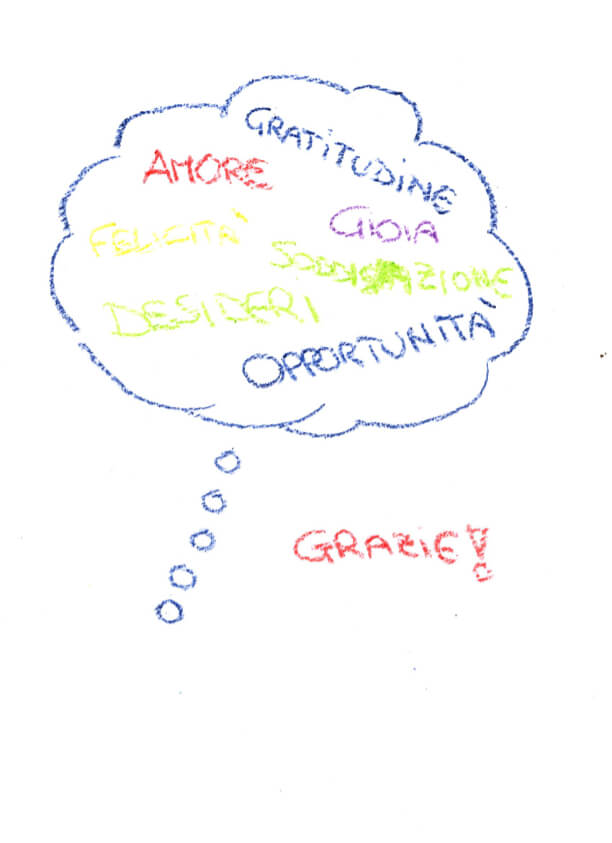 GRATITUDINE
AMORE
FELICITÀ
GIOIA
SODDISFAZIONE
DESIDERI
OPPORTUNITÀ
GRAZIE!